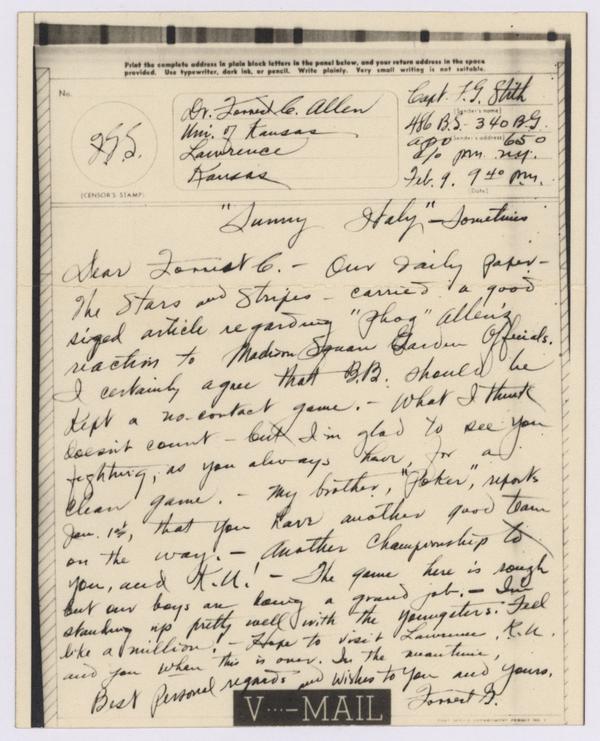 Print the complete address in plain block letters in the panel below, and your return address in the space
provided. Use typewriter, dark ink, or pencil. Write plainly. Very small writing is not suitable.
No.
(CENSOR'S STAMP)
Dr. Forrest C. Allen
Uni. of Kansas
Lawrence
Kansas
Capt. F. G.
(Sender's name)
486 B.S. - 340 B.G.
(Sender's address)
APO 650
c/o pm. n.y.
Feb. 9. 9:40 pm.
(Date)
"Sunny Italy" - Sometimes
Dear Forrest C. - Our daily paper -
The Stars and Stripes - carried a good
sized article regarding "Phog" Allen's
reaction to Madison Square Garden Officials.
I certainly agree that B.B. should be
kept a no-contact game. - What I think
doesn't count - but I'm glad to see you
fighting, as you always have, for a
clean game. - My brother, "Poker", reports
Jan. 1st, that you have another good team
on the way. - Another Championship to
you, and K.U.! - The game here is rough
but our boys are doing a grand job. - I'm
standing up pretty well with the youngsters. Feel
like a million! - Hope to visit Lawrence, K.U.
and you when this is over. In the meantime,
Best personal regards and wishes to you and yours.
Forrest G.
V···—MAIL